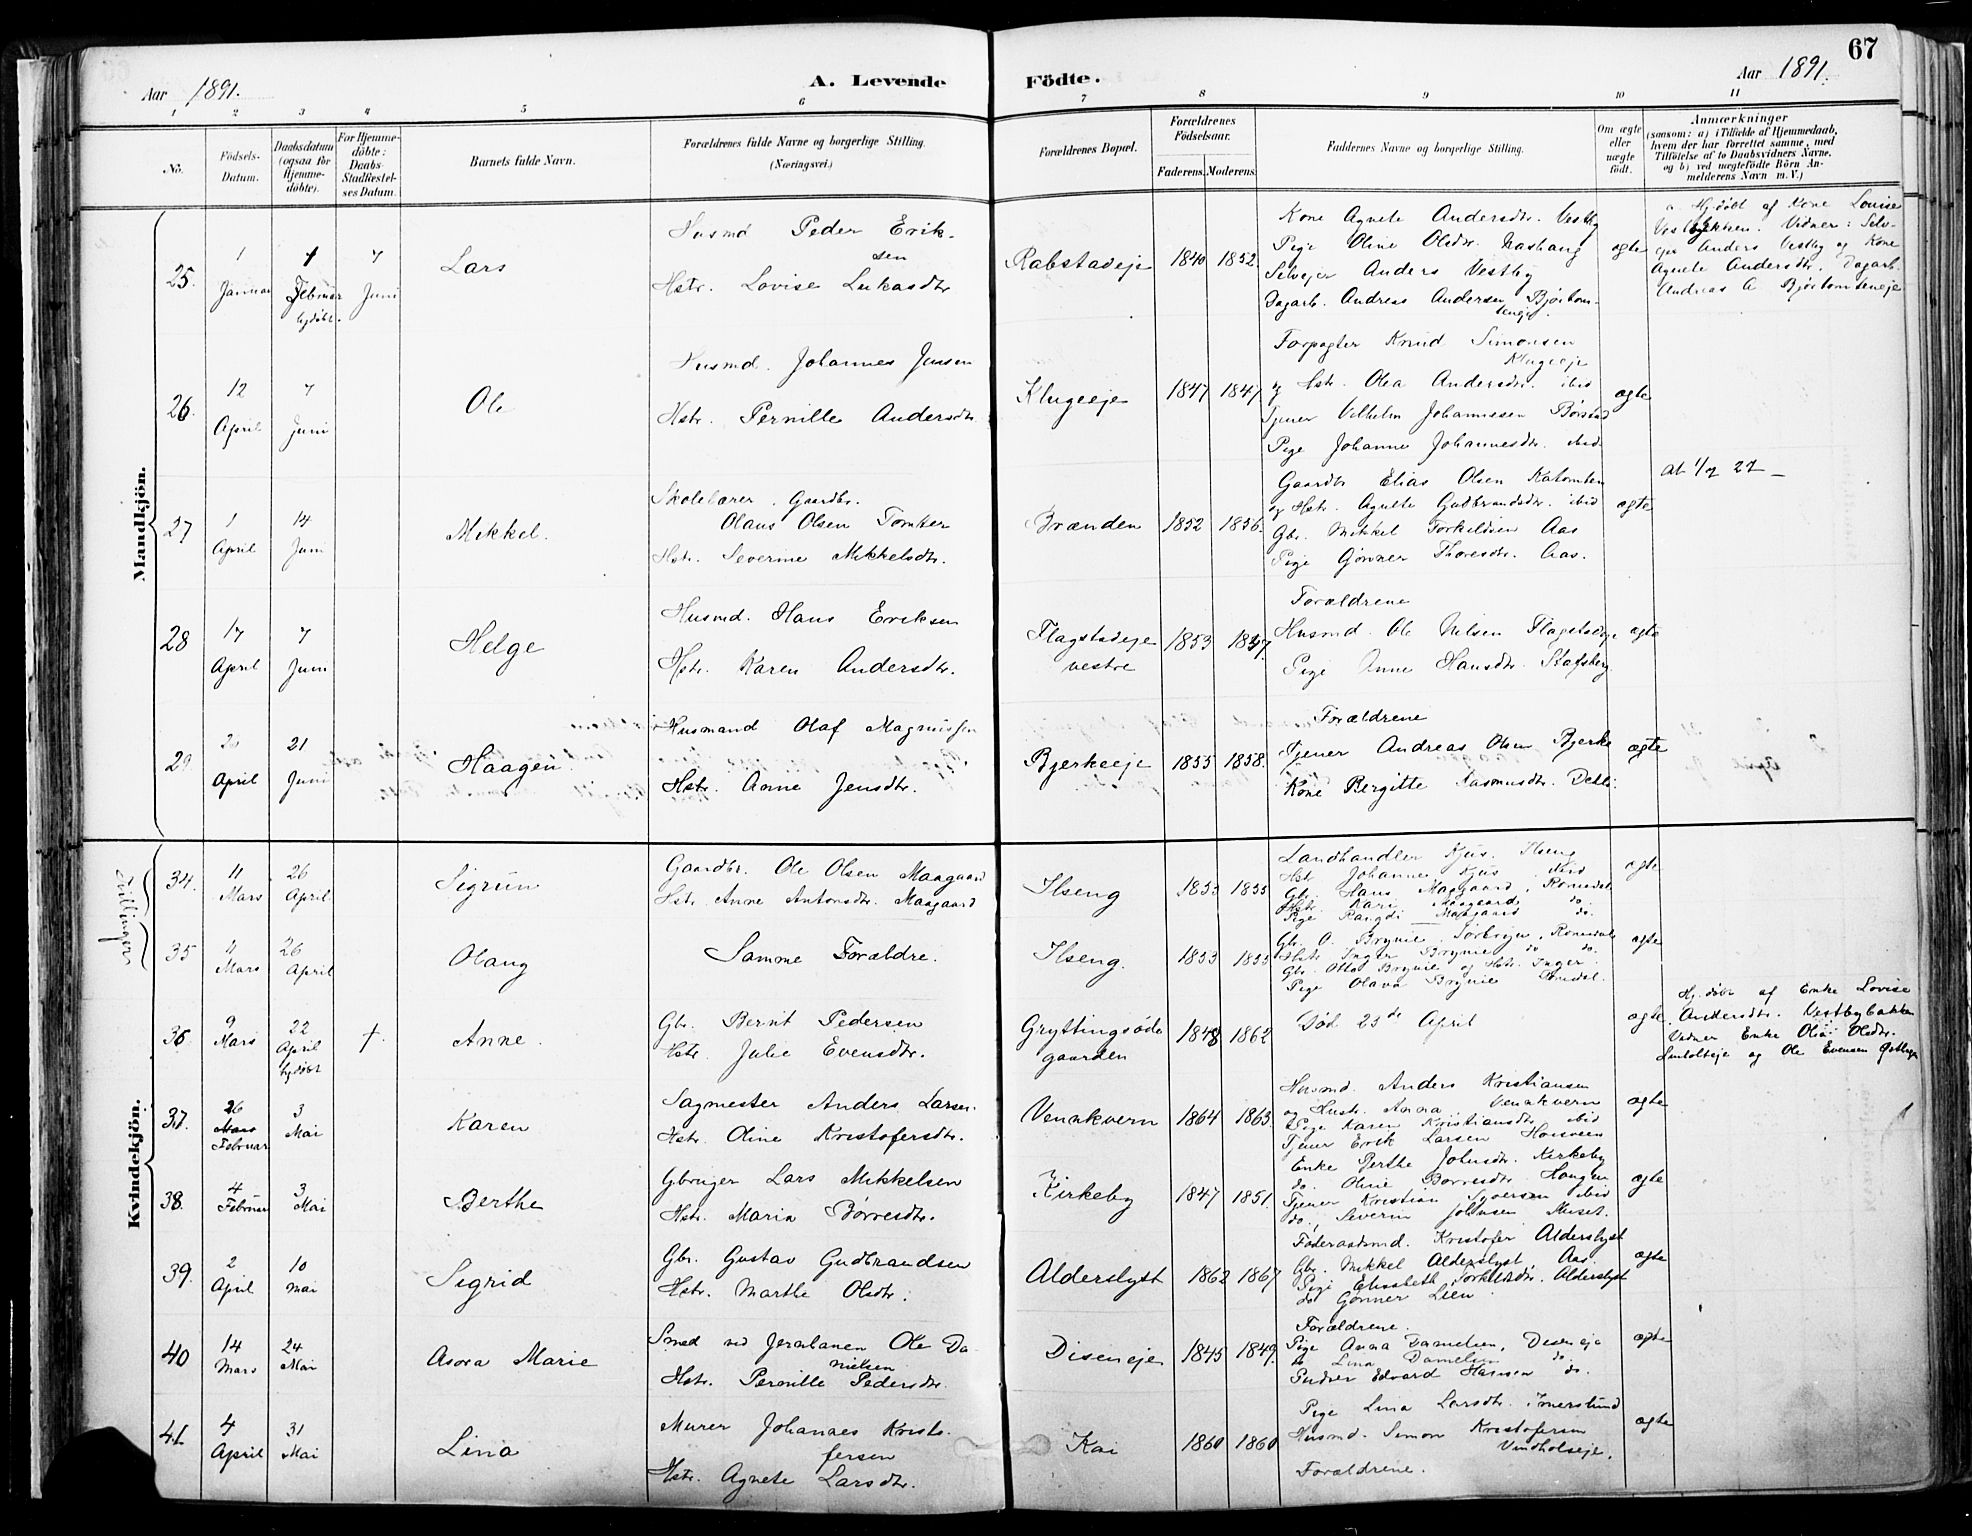 67
Aar 1891.
A. Levende
Födte.
Aar 1891.
1 2 3 4 5 6 7 8 9 10 11
No.
Födsels-
Datum.
Daabsdatum
(ogsaa for
Hjemme-
döbte).
For Hjemme-
döbte:
Daabs-
Stadfæstel-
ses Datum.
Barnets fulde Navn.
Forældrenes fulde Navne og borgerlige Stilling.
(Næringsvei.)
Forældrenes Bopæl.
Forældrenes
Födselsaar.
Faderens. Moderens.
Faddernes Navne og borgerlige Stilling.
Om ægte
eller
uægte
födt.
Anmærkninger
(saasom: a) i Tilfælde af Hjemmedaab,
hvem der har forrettet samme, med
Tilföielse af to Daabsvidners Navne,
og b) ved uægtefödte Börn An-
melderens Navn m. V.)
Mandkjön.
25.
1
Januar
Februar
hjdøbt.
7
Juni
Lars
Husmd Peder Erik-
sen
Hstr. Lovise Lukasdtr
Rabstadeje
1840 1852.
Kone Agnete Andersdtr. Vestby
Pige Oline Olsdtr.
Selvejer Anders Vestby
Dagarb. Andreas Andersen
ægte
Hj.døbt af Kone Lovise
Vidner: Selv-
ejer Anders Vestby og Kone
Agnete Andersdtr. Dagarb.
Andreas A
26.
12
April
7
Juni
Ole
Husmd. Johannes Jensen
Hstr. Pernille Andersdtr
Klugeeje
1847 1847
Forpagter Knud Simonsen
Klugeeje
og Hstr. Olea Andersdtr. ibid
Tjener Vilhelm Johannessen Børstad
Pige Johanne Johannesdtr. ibid.
ægte
27
1
April
14
Juni
Mikkel.
Skolelærer. Gaardbr.
Olaus Olsen Tomter
Hstr. Severine Mikkelsdtr.
Brænden
1852 1856.
Gaardbr Elias Olsen
og Hstr. Agnethe Gudbrandsdtr. ibid
Gbr. Mikkel Torkildsen Aas
Pige Gønner Thoresdtr. Aas.
ægte
28
17
April
7
Juni
Helge
Husmd. Hans Eriksen
Hstr. Karen Andersdtr.
Flagstadeje
vestre
1853
Forældrene
Husmd. Ole Nilsen Flagstadeje
Pige Anne Hansdtr.
ægte
29
April
21
Juni
Haagen.
Husmand Olaf Magnussen
Hstr. Anne Jensdtr.
Bjerkeeje
1855 1858.
Forældrene
Tjener Andreas Olsen Bjerke
Kone Bergitte Rasmusdtr.
ægte
Kvindekjön.
Tvillinger
34.
11
Mars
26
April
Sigrun
Gaardbr. Ole Olsen Maagaard
Hstr. Anne Antonsdtr. Maagaard
Ilseng
1853 1855
Landhandler Kjus. Ilseng
Hstr Johanne Kjus ibid
Gbr. Hans Maagaard, Romedal
Hstr. Kari Maagaard do.
Pige Rangdi Maagaard do.
ægte
35
11
Mars
26
April
Olaug
Samme Forældre.
Ilseng.
1853 1855
Gbr. O. Brynie Romedal
Hstr Inger Brynie do do.
Gbr. Ottar Brynie og Hstr. Inger
Pige Olava Brynie
ægte
36
9
Mars
22
April
hjdøbt
†.
Anne.
Gbr. Bernt Pedersen
Hstr. Julie Evensdtr.
Gryttingsøde
gaarden
1848 1862
Død 23de April
ægte
Hj.døbt af Enke Lovise
Andersdtr. Vestbybakken
Vidner Enke Olia Olsdtr.
og Ole Evensen
37.
26
Mars
Februar
3
Mai
Karen
Sagmester Anders Larsen
Hstr. Oline Kristofersdtr.
Venakvern
1864 1863
Husmd. Anders Kristiansen
og Hustr. Anna Venakvern
Pige Karen Kristiansdtr ibid
Tjener Erik Larsen
ægte
38.
4
Februar
3
Mai
Berthe
Gbruger Lars Mikkelsen
Hstr. Maria Børresdtr.
Kirkeby
1847 1851.
Enke Berthe Johnsdtr. Kirkeby
do. Oline Børresdtr. Haugen
Tjener Kristian Syversen ibid
do. Severin Johnsen
ægte
39.
2
April
10
Mai
Sigrid
Gbr. Gustav Gudbrandsen
Hstr. Marthe Olsdtr.
Alderslyst
1862 1867
Føderaadsmd. Kristofer Alderslyst
Gbr. Mikkel Alderslyst, Aas.
Pige Elisabeth Torkildsdtr. Alderslyst
do Gønner Lien
ægte
40
14
Mars
24
Mai
Asora Marie
Smed ved Jernbanen Ole Da-
nielsen
Hstr. Pernille Pedersdtr.
Diseneje
1845 1849.
Forældrene.
Pige Anna Danielsen, Diseneje
do Lina Danielsen do.
Edvard Hansen do.
ægte
41.
4
April
31
Mai
Lina
Murer Johannes Kristo-
fersen
Hstr. Agnete Larsdtr.
Kai
1860 1860
Pige Lina Larsdtr. Imerslund
Husmd. Simon Kristofersen
Vindholseje.
Forældrene.
ægte